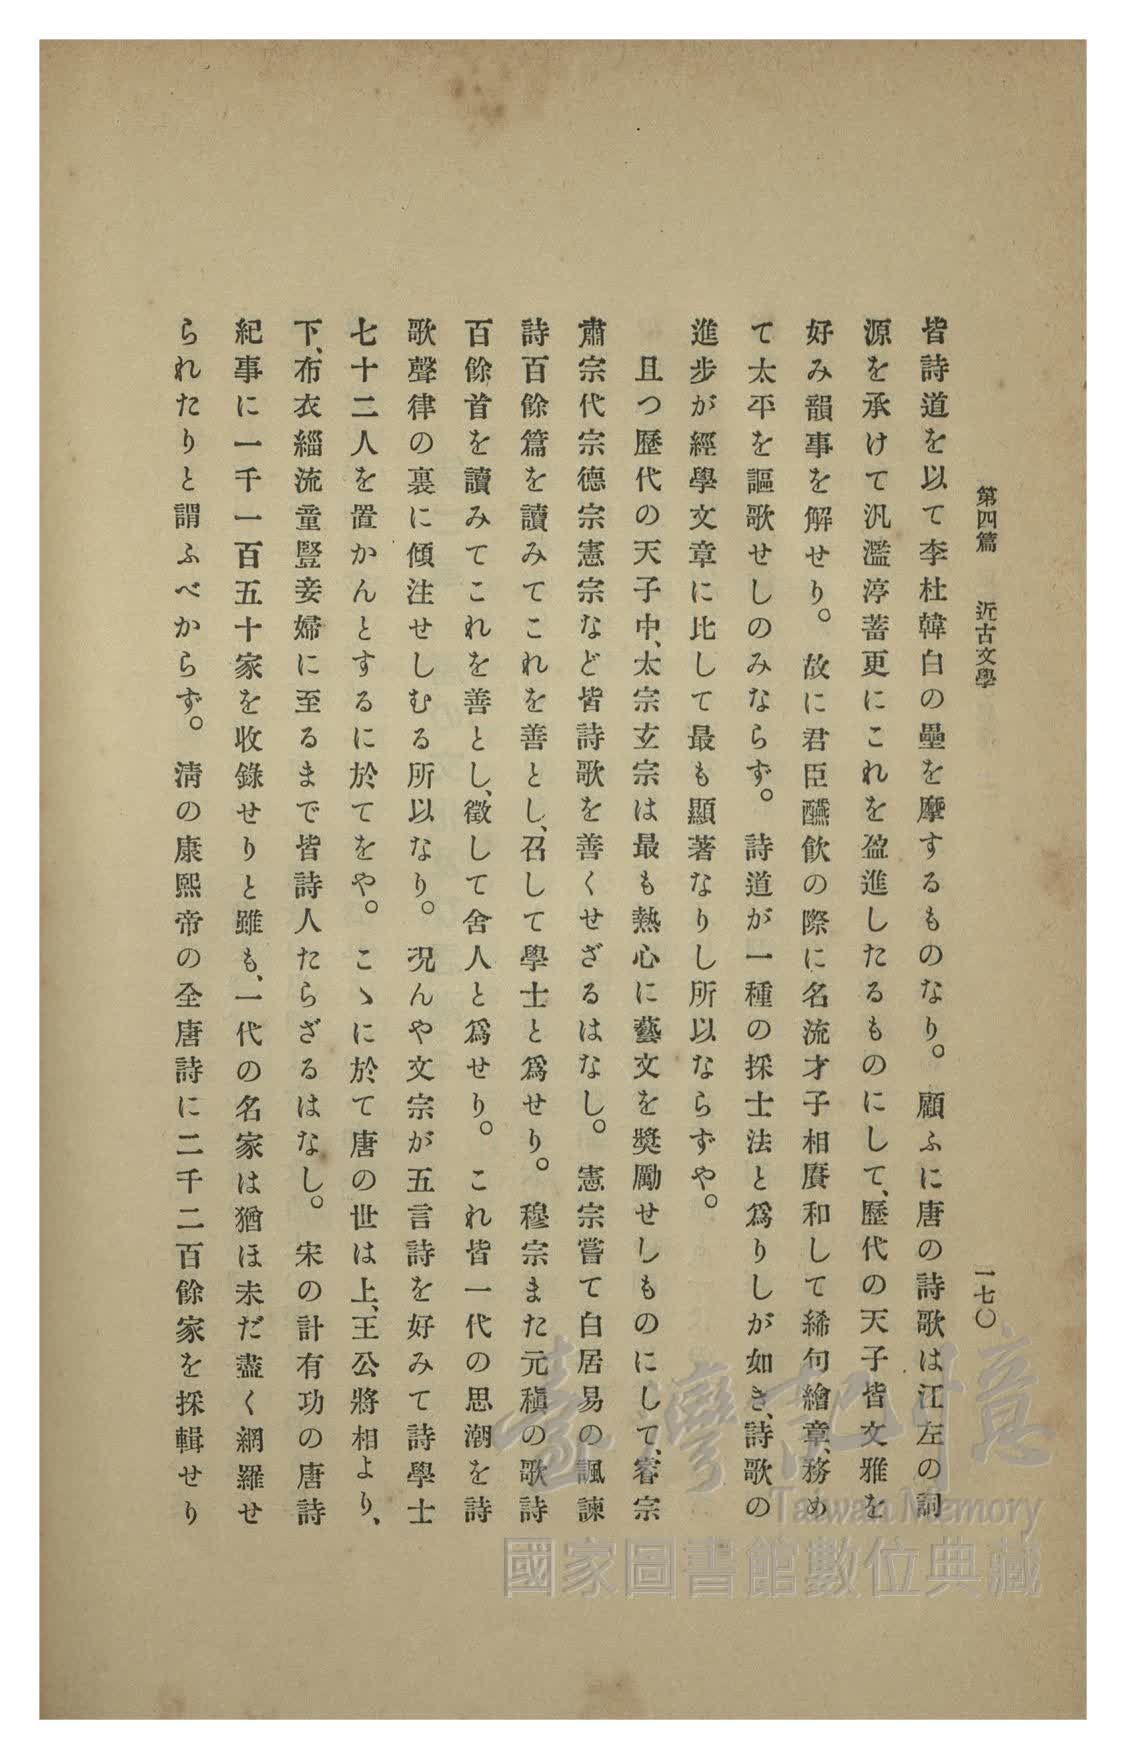 第四篇　近古文學　一七〇
皆詩道を以て李杜韓白の壘を摩するものなり。顧ふに唐の詩歌は江左の詞
源を承けて汎濫渟蓄更にこれを盈進したるものにして、歷代の天子皆文雅を
好み韻事を解せり。故に君臣醼飮の際に名流才子相賡和して絺句繪章、務め
て太平を謳歌せしのみならず。詩道が一種の採士法と爲りしが如き、詩歌の
進步が經學文章に比して最も顯著なりし所以ならずや。
且つ歷代の天子中、太宗玄宗は最も熱心に藝文を奬勵せしものにして、睿宗
肅宗代宗德宗憲宗など皆詩歌を善くせざるはなし。憲宗嘗て白居易の諷諫
詩百餘篇を讀みてこれを善とし、召して學士と爲せり。穆宗また元稹の歌詩
百餘首を讀みてこれを善とし、徵して舍人と爲せり。これ皆一代の思潮を詩
歌聲律の裏に傾注せしむる所以なり。況んや文宗が五言詩を好みて詩學士
七十二人を置かんとするに於てをや。こゝに於て唐の世は上、王公將相より、
下、布衣緇流童豎妾婦に至るまで皆詩人たらざるはなし。宋の計有功の唐詩
紀事に一千一百五十家を收錄せりと雖も、一代の名家は猶ほ未だ盡く網羅せ
られたりと謂ふべからず。淸の康熙帝の全唐詩に二千二百餘家を採輯せり
臺灣記憶
Taiwan Memory
國家圖書館數位典藏